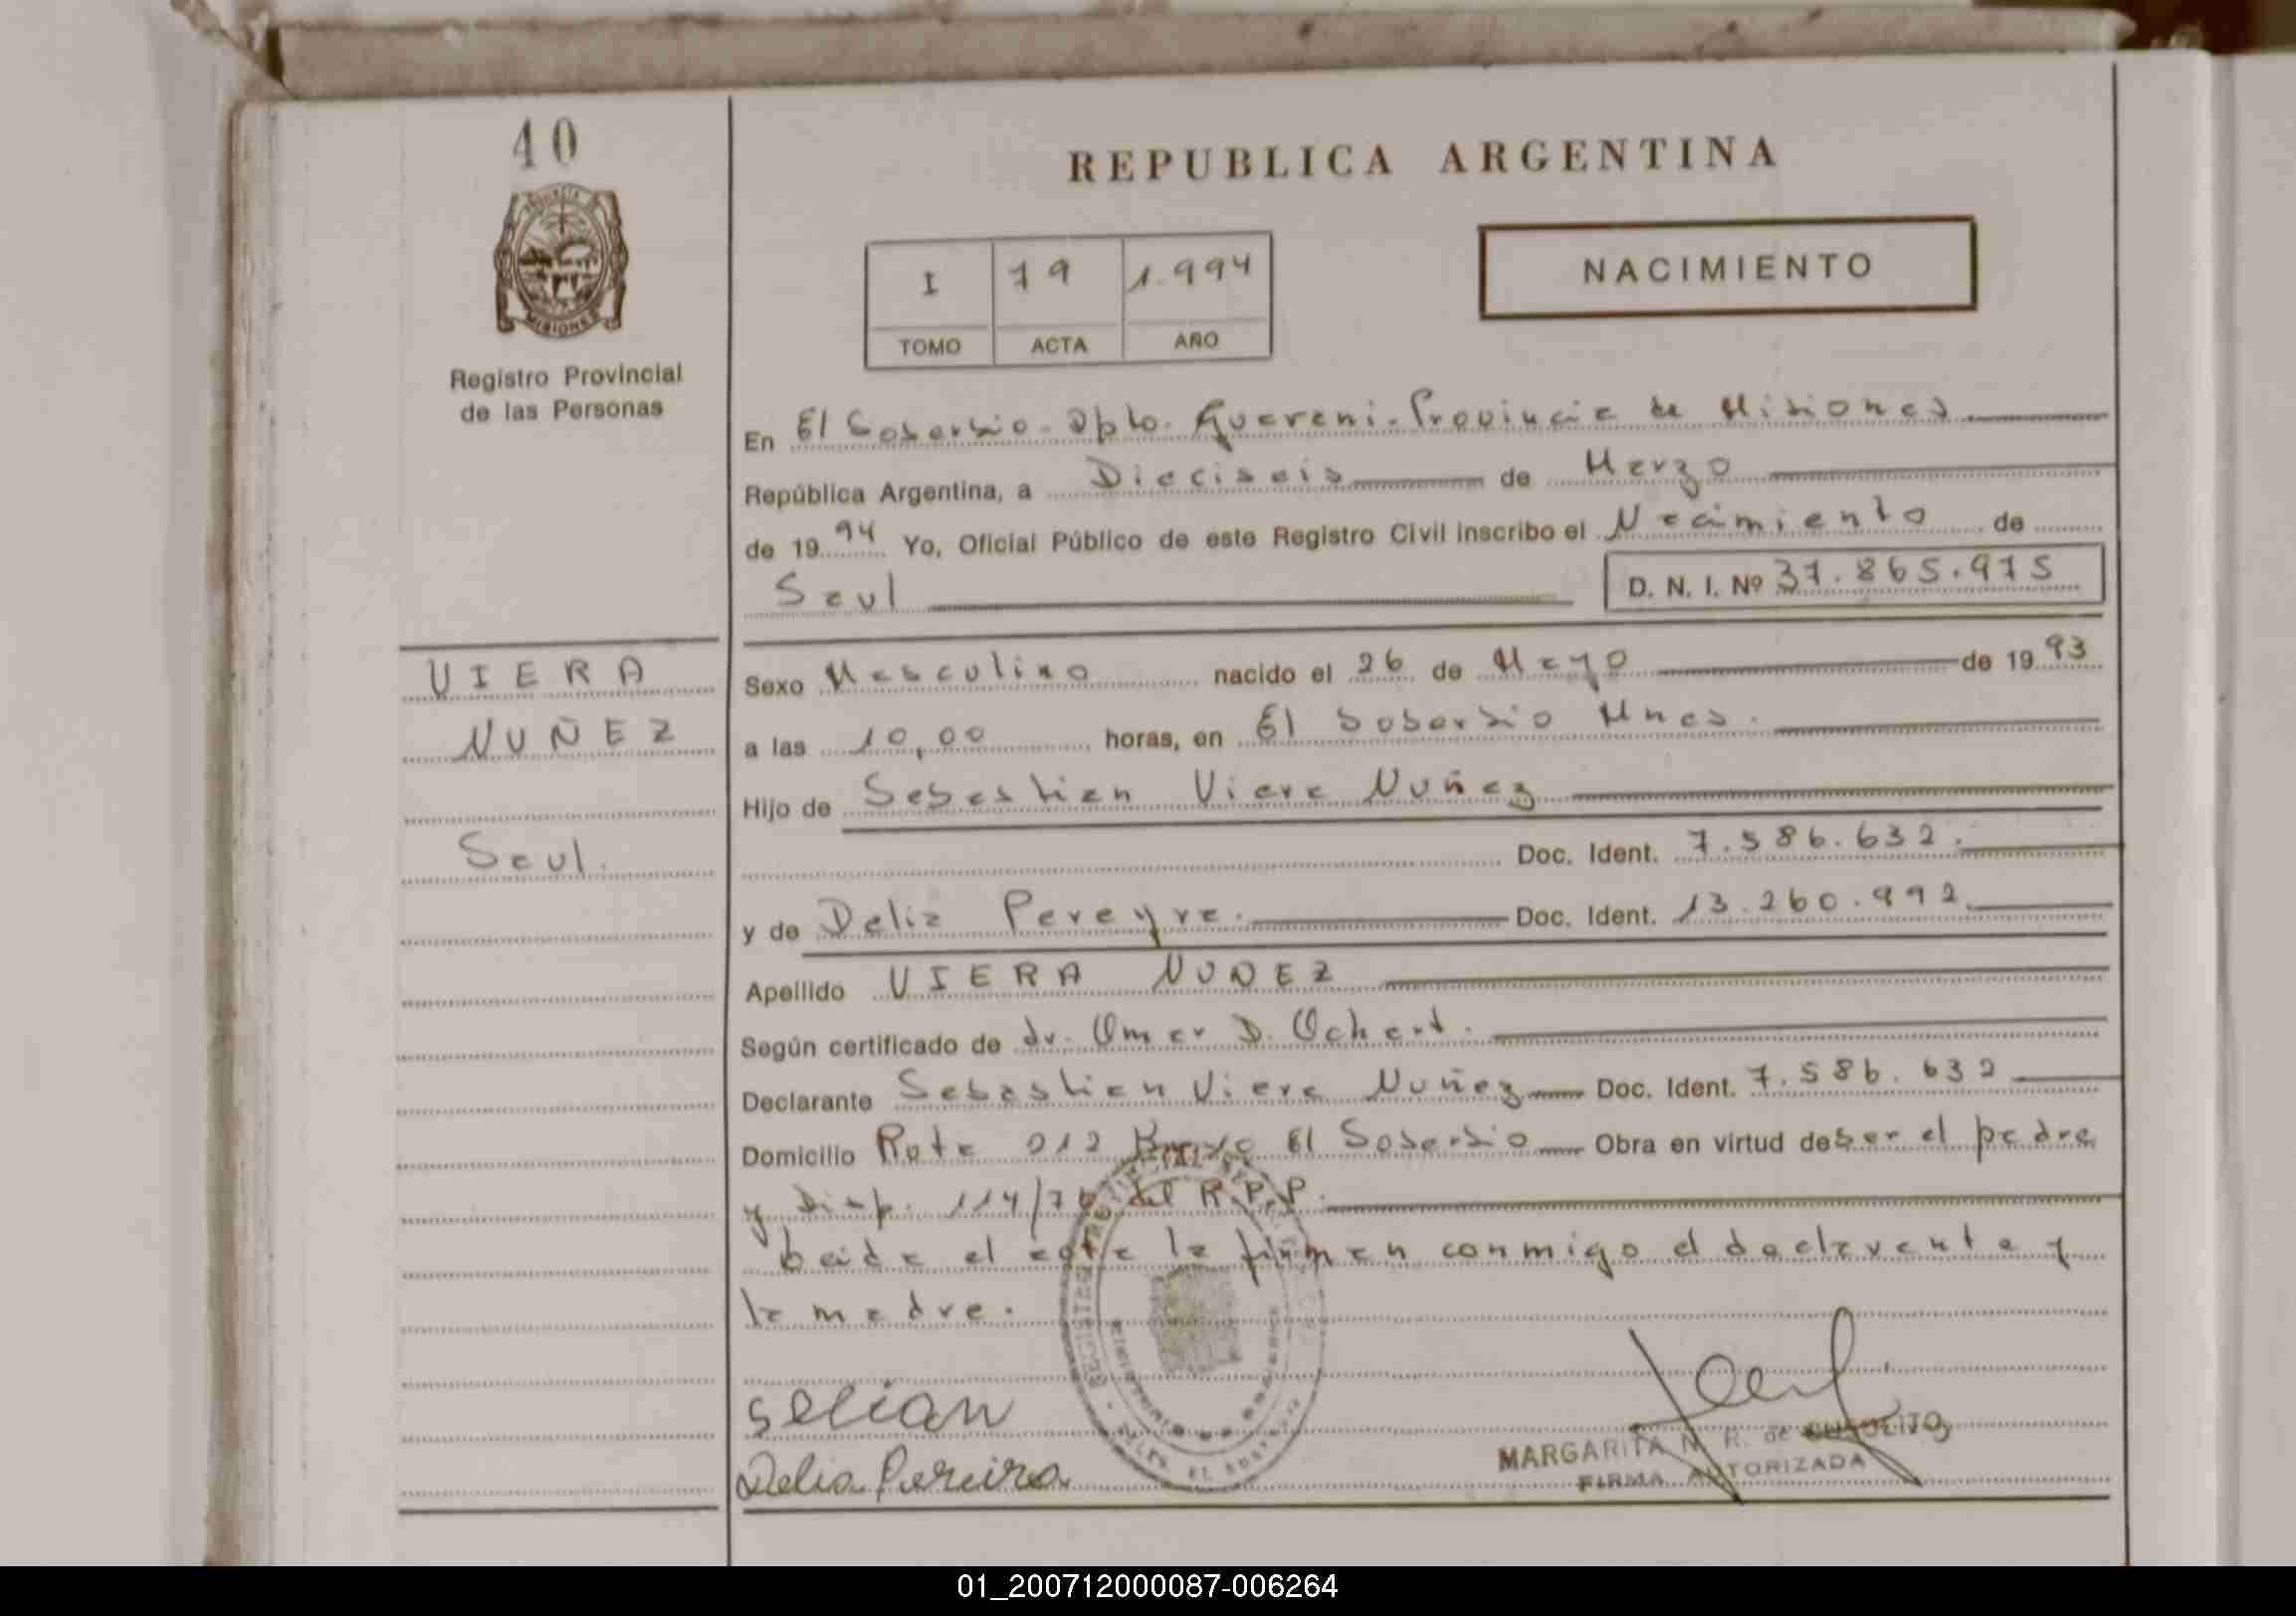 40
REPUBLICA ARGENTINA
MISIONES
Registro Provincial
de las Personas
I 79 1.994
TOMO ACTA AÑO
NACIMIENTO
En El Soberbio - Dpto. Guarani - Provincia de Misiones
República Argentina, a Dieciseis de Marzo
de 1994 Yo, Oficial Público de este Registro Civil inscribo el Nacimiento de
Saul D. N. I. Nº 37.865.975
VIERA
NUÑEZ
Saul.
Sexo Masculino nacido el 26 de Mayo de 1993
a las 10,00 horas, en El Soberbio Mnes.
Hijo de Sebastian Viera Nuñez
Doc. Ident. 7.586.632.
y de Delia Pereyra. Doc. Ident. 13.260.992.
Apellido VIERA NUÑEZ
Según certificado de dr. Omar D.
Declarante Sebastian Viera Nuñez Doc. Ident. 7.586.632
Domicilio Rota 212 El Soberbio Obra en virtud de ser el padre
y Disp. 114/76 del R.P.P.
Leida el acta la firman conmigo el declarante y
la madre.
selian
Delia Pereira
MARGARITA N. R. de
FIRMA AUTORIZADA
01_200712000087-006264